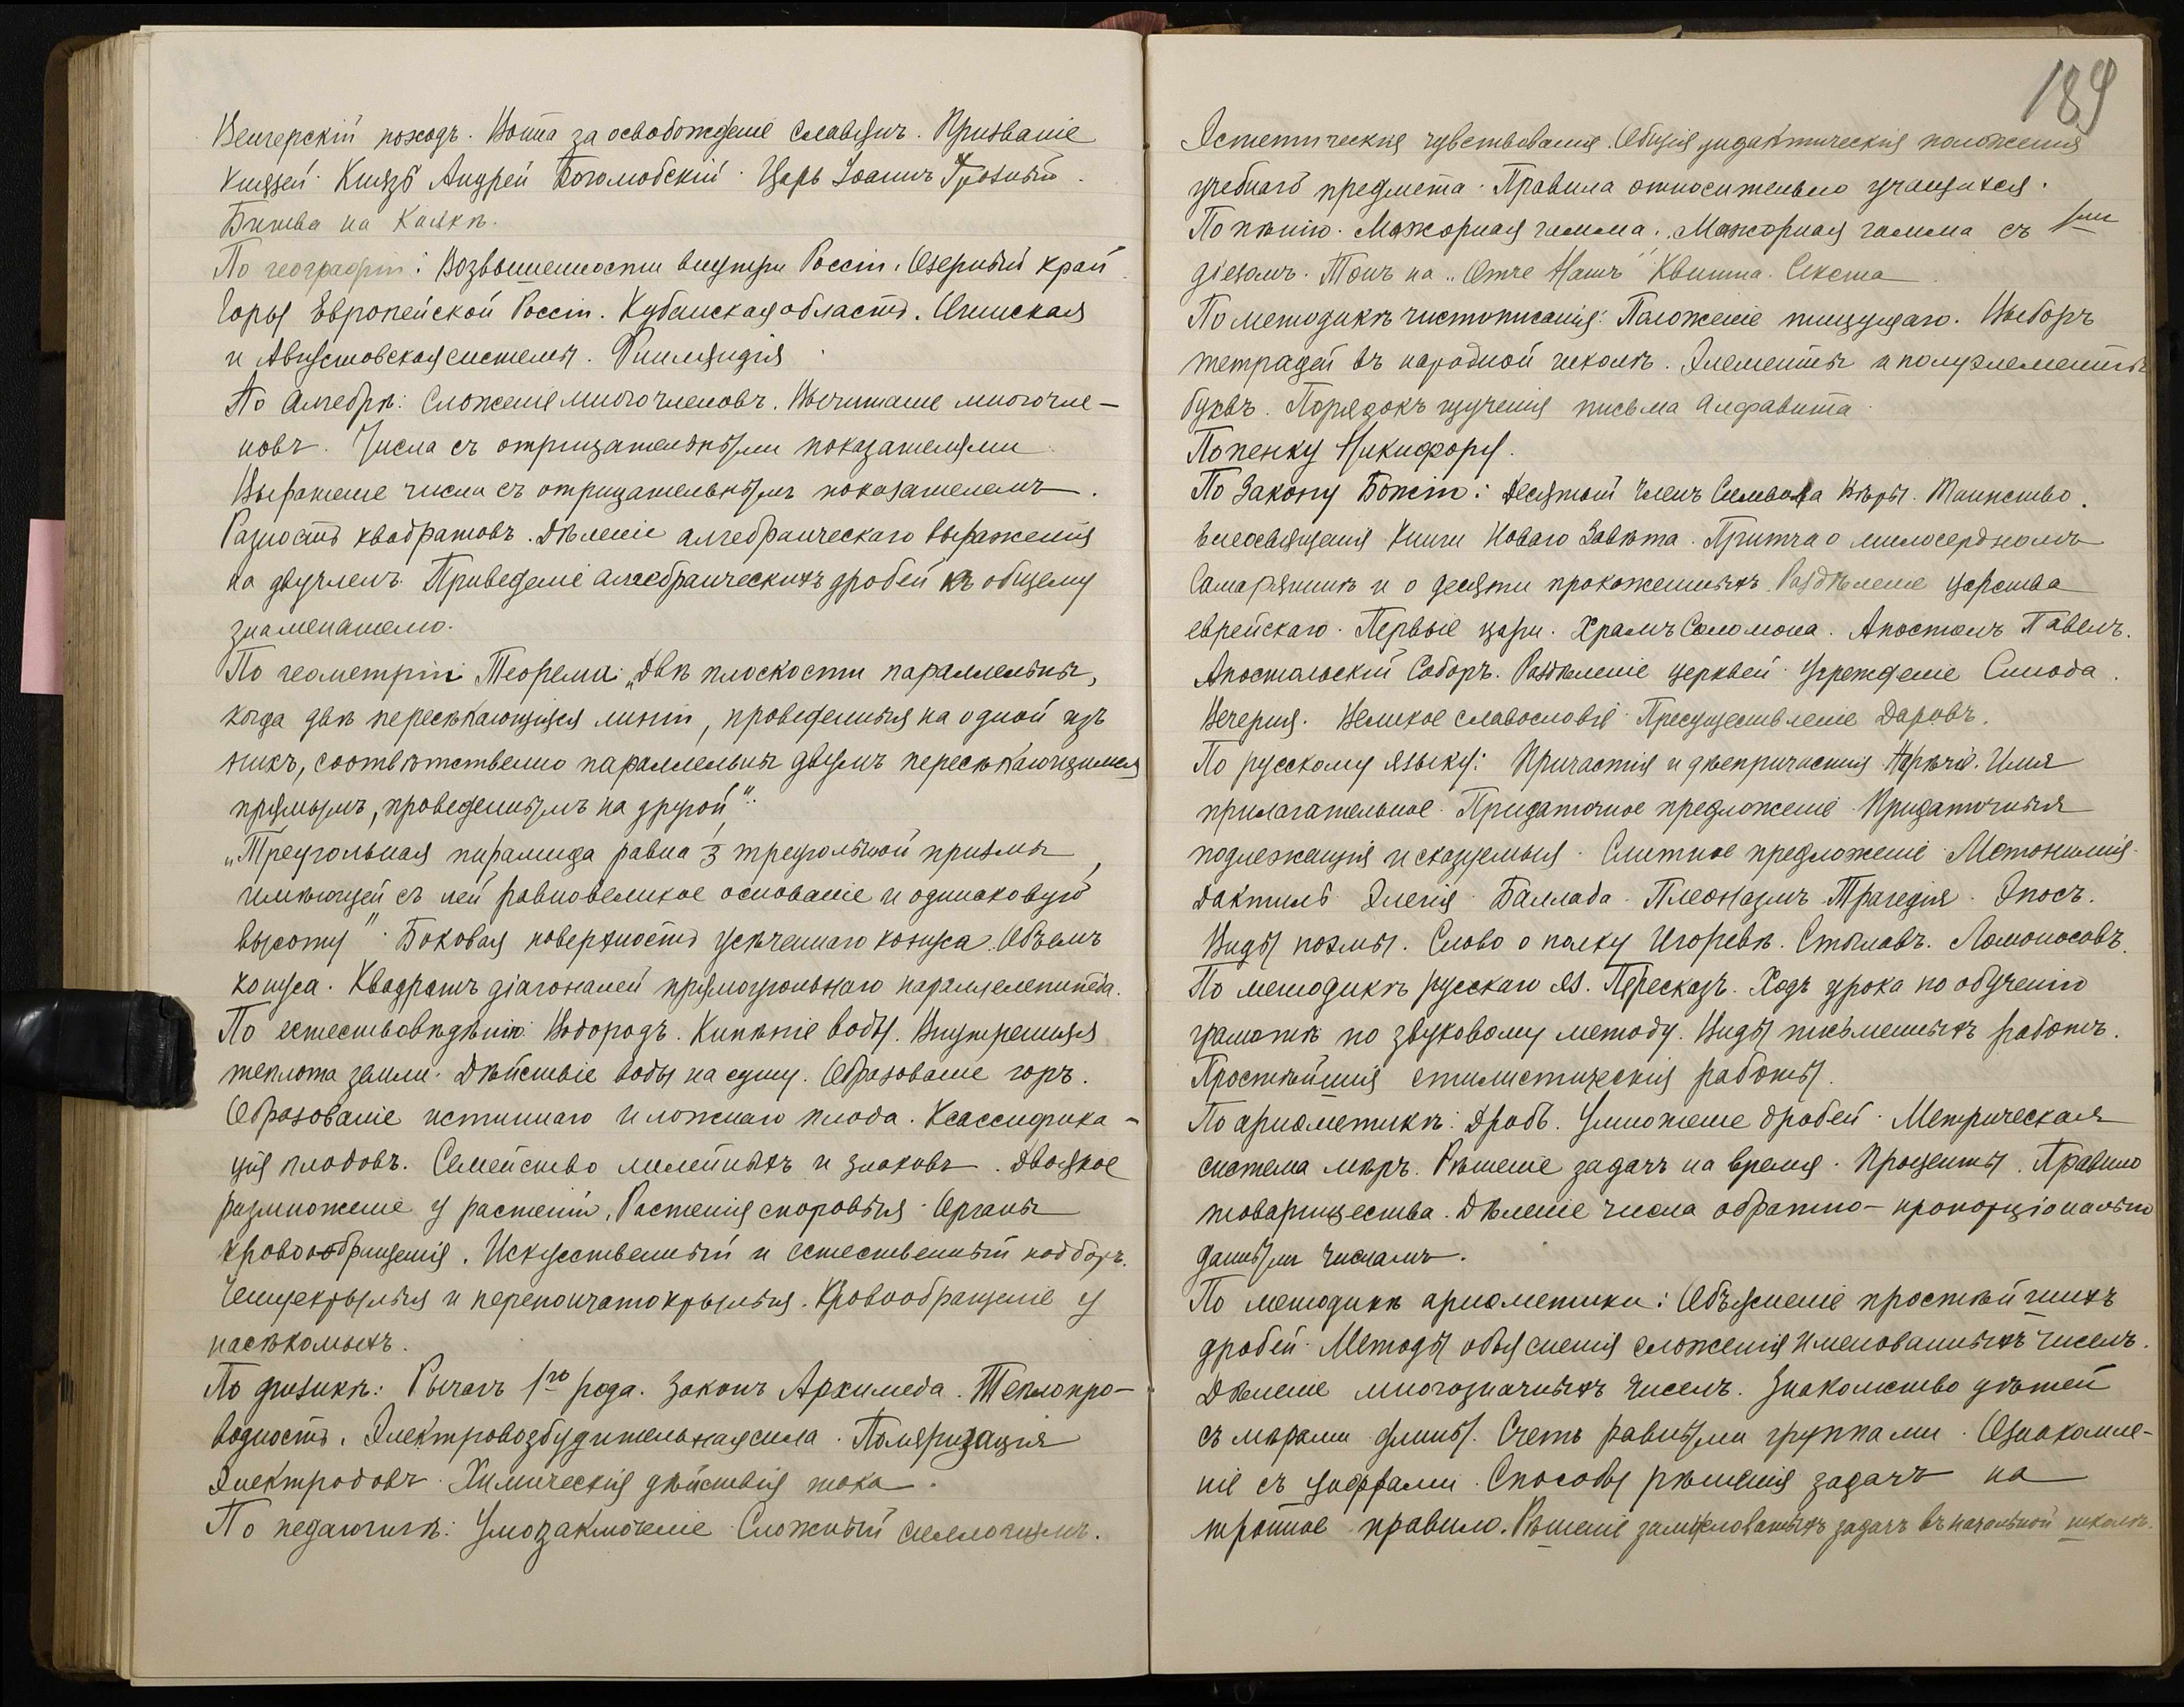 Венгерскій походъ. Война за освобожденіе славянъ. Призваніе
князей. Князь Андрей Боголюбскій. Царь Іоаннъ Грозный.
Битва на Калкѣ.
По географіи: Возвышенности внутри Россіи. Озерный край.
Горы Европейской Россіи. Кубанская область.
и Августовская системы. Финляндія.
По алгебрѣ: Сложеніе многочленовъ. Вычитаніе многочле-
новъ. Числа съ отрицательными показателями
Выраженіе числа съ отрицательнымъ показателемъ.
Разность квадратовъ. Дѣленіе алгебраическаго выраженія
на двучленъ. Приведеніе алгебраическихъ дробей къ общему
знаменателю.
По геометріи: Теорема: „Двѣ плоскости параллельны,
когда двѣ пересѣкающіяся линіи, проведенныя на одной изъ
нихъ, соотвѣтственно параллельны двумъ пересѣкающимся
прямымъ, проведеннымъ на другой".
„Треугольная пирамида равна ⅓ треугольной призмы,
имѣющей съ ней равновеликое основаніе и одинаковую
высоту". Боковая поверхность усѣченнаго конуса. Объемъ
конуса. Квадратъ діагоналей прямоугольнаго параллелепипеда.
По естествовѣдѣнію: Водородъ. Кипѣніе воды. Внутренняя
теплота земли. Дѣйствіе воды на сушу. Образованіе горъ.
Образованіе истиннаго и ложнаго плода. Классифика-
ція плодовъ. Семейство лилейныхъ и злаковъ. Двоякое
размноженіе у растеній. Растенія споровыя. Органы
кровообращенія. Искусственный и естественный подборъ.
Чешуекрылыя и перепончатокрылыя. Кровообращеніе у
насѣкомыхъ.
По физикѣ: Рычагъ 1го рода. Законъ Архимеда. Теплопро-
водность. Электровозбудительная сила. Поляризація
электродовъ. Химическія дѣйствія тока.
По педагогикѣ: Умозаключеніе. Сложный силлогизмъ.
189
Эстетическія чувствованія. Общія дидактическія положенія
учебнаго предмета. Правила относительно учащихся.
По пѣнію. Мажорная гамма. Мажорная гамма съ 1мъ
діезомъ. Тонъ на „Отче Нашъ" Квинта. Секста
По методикѣ чистописанія: Положеніе пишущаго. Выборъ
тетрадей въ народной школѣ. Элементы и полуэлементы
буквъ. Порядокъ изученія письма алфавита.
Попенку Никифору.
По Закону Божію: Десятый членъ Символа Вѣры. Таинство
елеосвященія. Книги Новаго Завѣта. Притча о милосердномъ
Самарянинѣ и о десяти прокаженныхъ. Раздѣленіе царства
еврейскаго. Первые цари. Храмъ Соломона. Апостолъ Павелъ.
Апостольскій Соборъ. Раздѣленіе церквей. Учрежденіе Синода.
Вечерня. Великое славословіе. Пресуществленіе Даровъ.
По русскому языку: Причастія и дѣепричастія. Нарѣчіе. Имя
прилагательное. Придаточное предложеніе. Придаточныя
подлежащія и сказуемыя. Слитное предложеніе. Метонимія.
Дактиль. Элегія. Баллада. Плеоназмъ. Трагедія. Эпосъ.
Виды поэмы. Слово о полку Игоревѣ. Ломоносовъ.
По методикѣ русскаго яз. Пересказъ. Ходъ урока по обученію
грамотѣ по звуковому методу. Виды письменныхъ работъ.
Простѣйшія стилистическія работы.
По ариѳметикѣ: Дробь. Умноженіе дробей. Метрическая
система мѣръ. Рѣшеніе задачъ на время. Проценты. Правило
товарищества. Дѣленіе числа обратно-пропорціонально
даннымъ числамъ.
По методикѣ ариѳметики: Объясненіе простѣйшихъ
дробей. Методы объясненія сложенія именованныхъ чиселъ.
Дѣленіе многозначныхъ чиселъ. Знакомство дѣтей
съ мѣрами длины. Счетъ равными группами. Ознакомле-
ніе съ цифрами. Способы рѣшенія задачъ на
тройное правило. Рѣшеніе задачъ въ начальной школѣ.